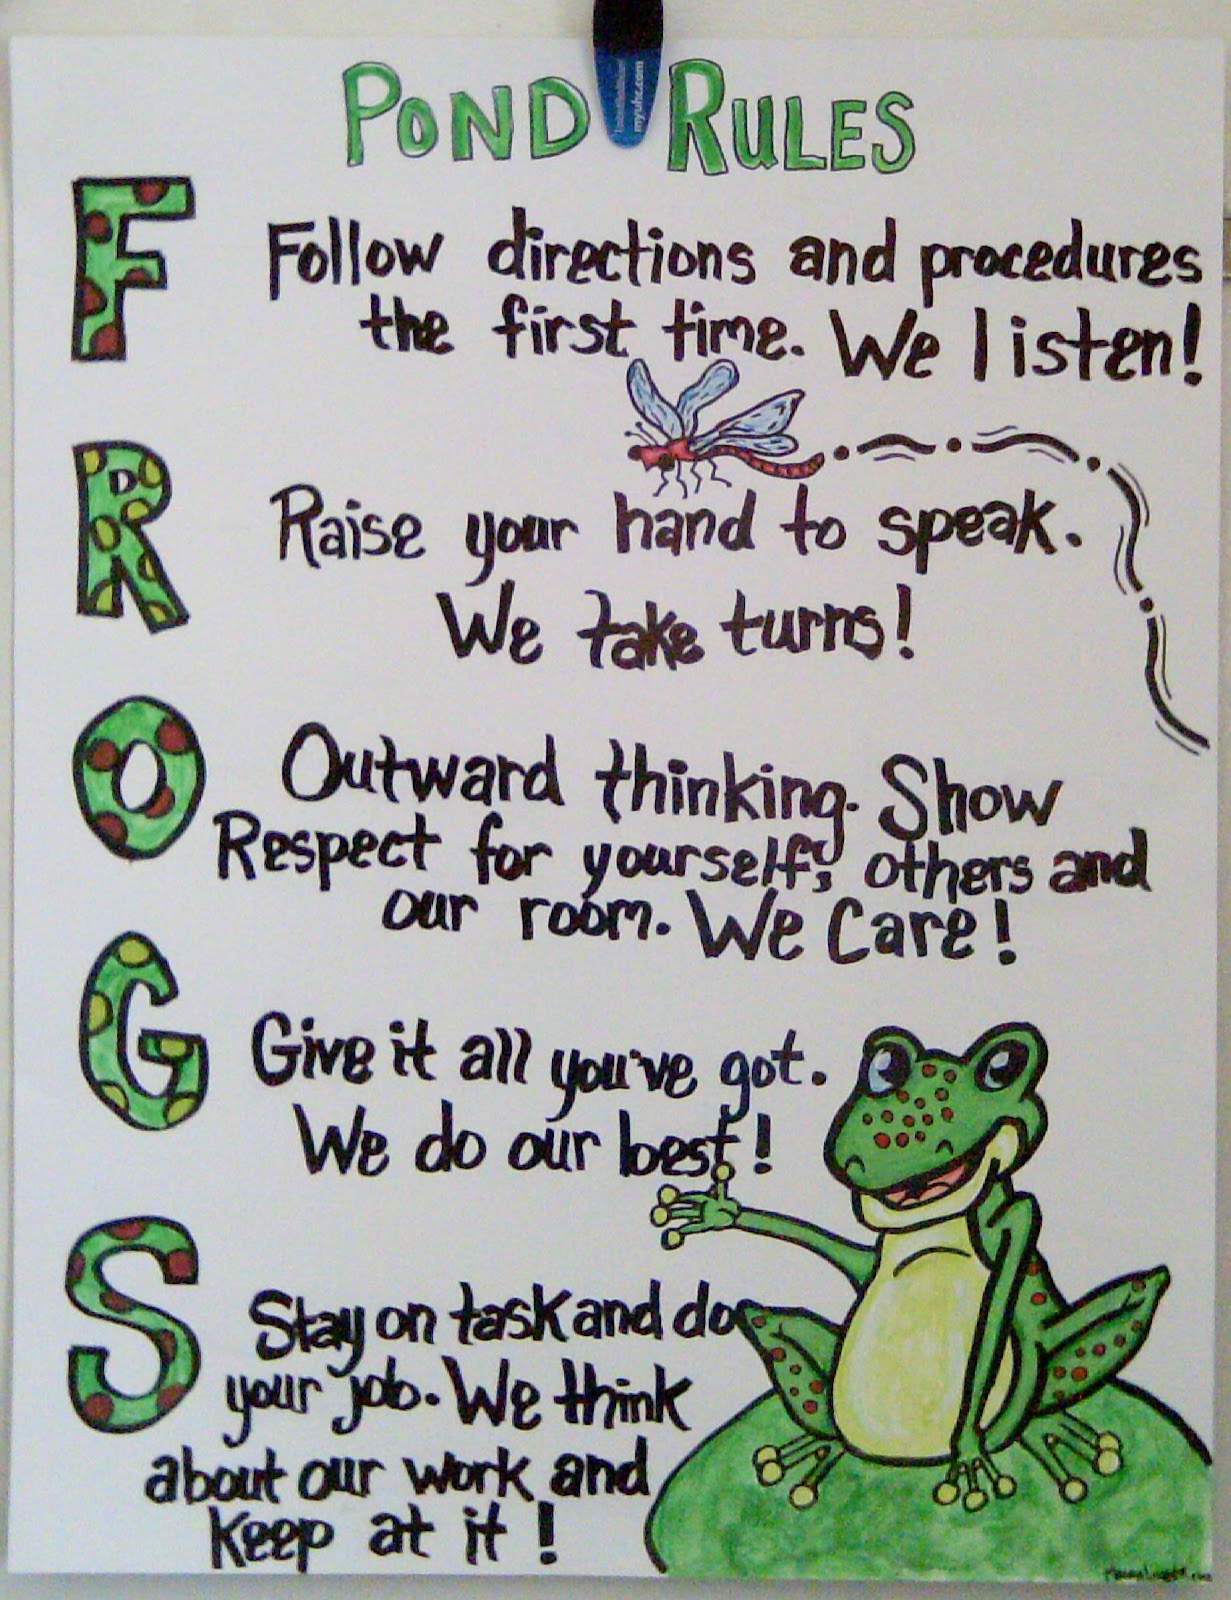 POND RULES
myuhc.com
F
Follow directions and procedures
the first time. We listen!
R
Raise your hand to speak.
We take turns!
O
Outward thinking. Show
Respect for yourself, others and
our room. We Care!
G
Give it all you've got.
We do our best!
S
Stay on task and do
your job. We think
about our work and
keep at it!